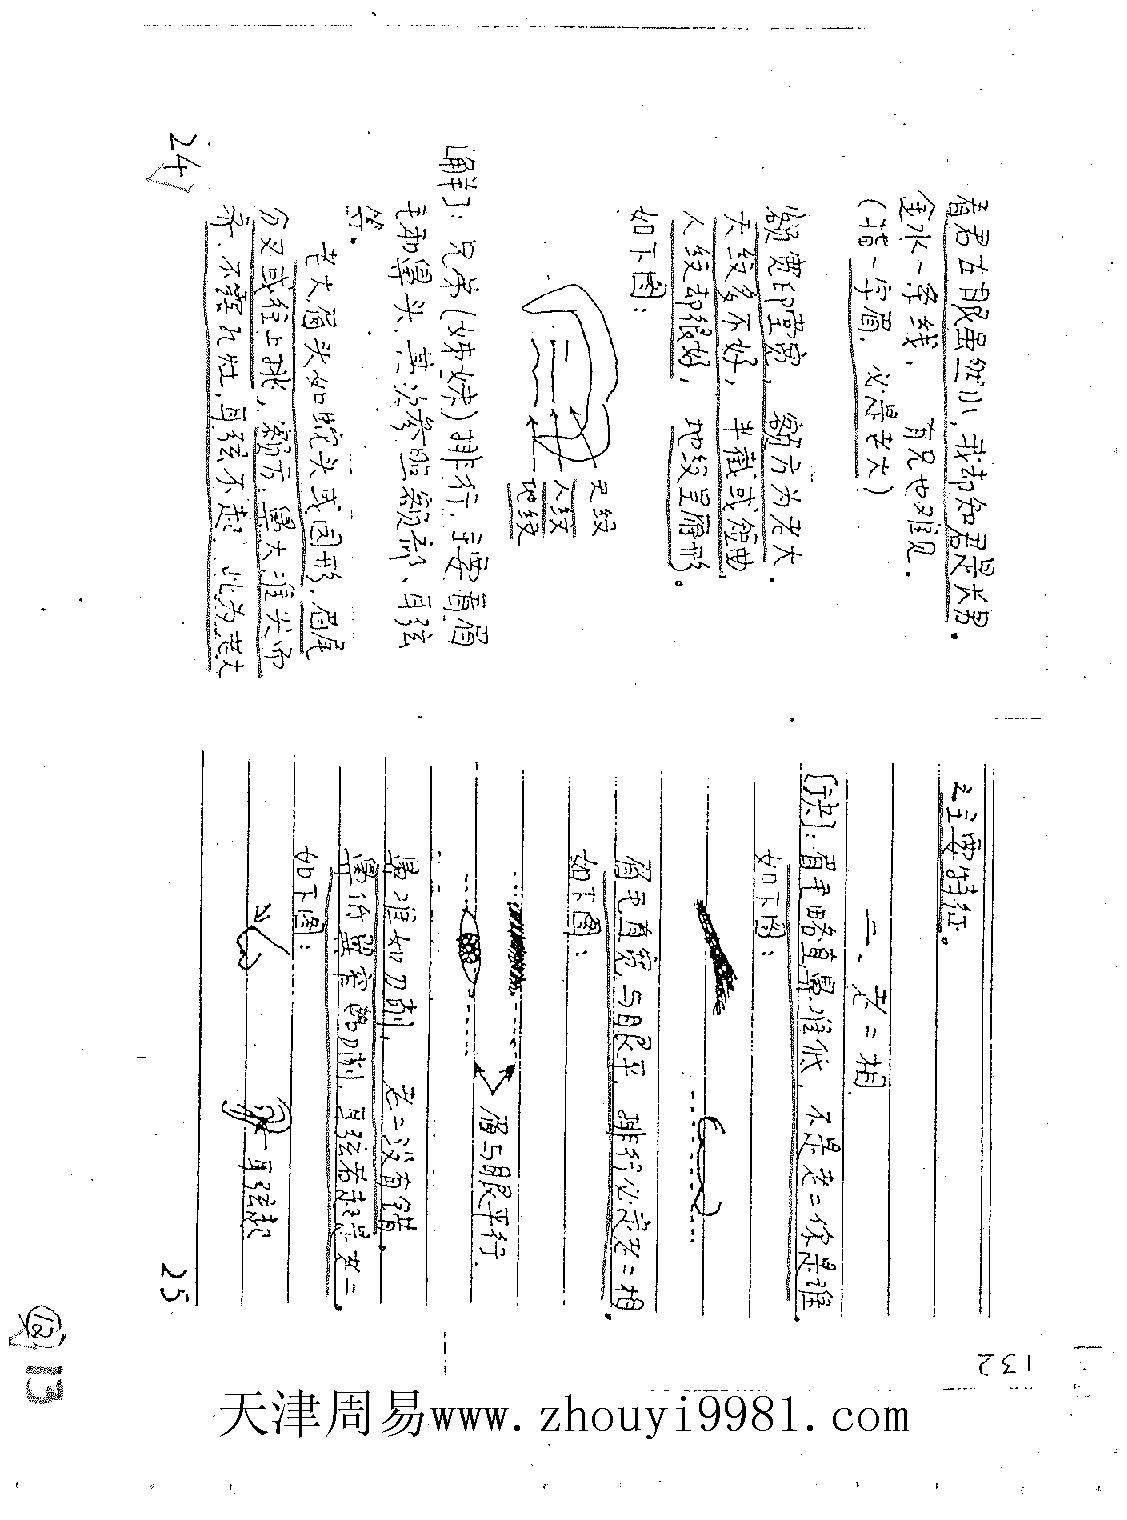 看君右眼虽然小，我却知君是长男。
金水一字线，有兄也难见。
（指一字眉，必是老大）
额宽印堂宽，额方为老大。
天纹多不好，半截或弯曲，
人纹却很好，地纹呈眉形。
如下图：
天纹
人纹
地纹
〔解〕：兄弟（姊妹）排行，主要看眉
毛和鼻头，其次参照额部、耳弦
等。
老大眉头如蛇头或圆形，眉尾
分叉或往上挑，额方，鼻大准尖而
齐，不露孔灶，耳弦不起，此为老大
24
之主要特征。
二、老二相
〔诀〕：眉毛略直鼻准低，不是老二你是谁
如下图：
眉毛直宽与眼平，排行必定老二相。
如下图：
眉与眼平行
鼻准如刀削，老二没有错。
鼻价翼旁如刀削，耳弦若起是老二。
如下图：
耳弦起
25
132
13
天津周易www.zhouyi9981.com